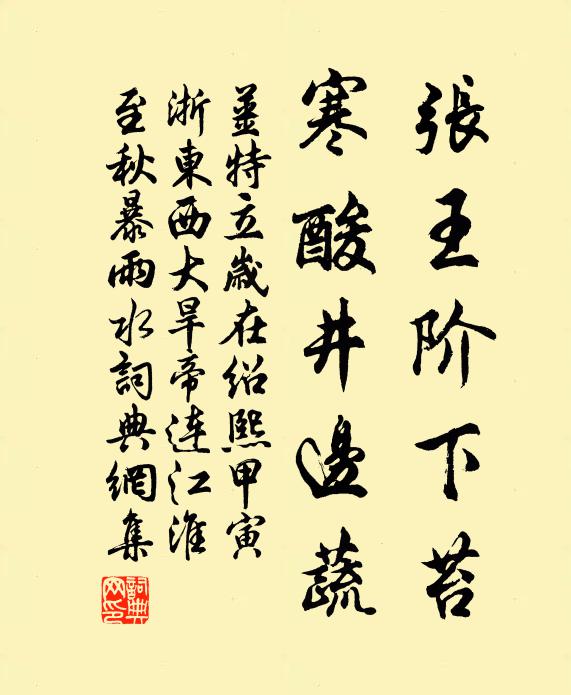 張王阶下苔
寒酸井邊蔬
姜特立歲在紹熙甲寅
浙東西大旱帝連江淮
至秋暴雨水詞典網集
詞典
网印